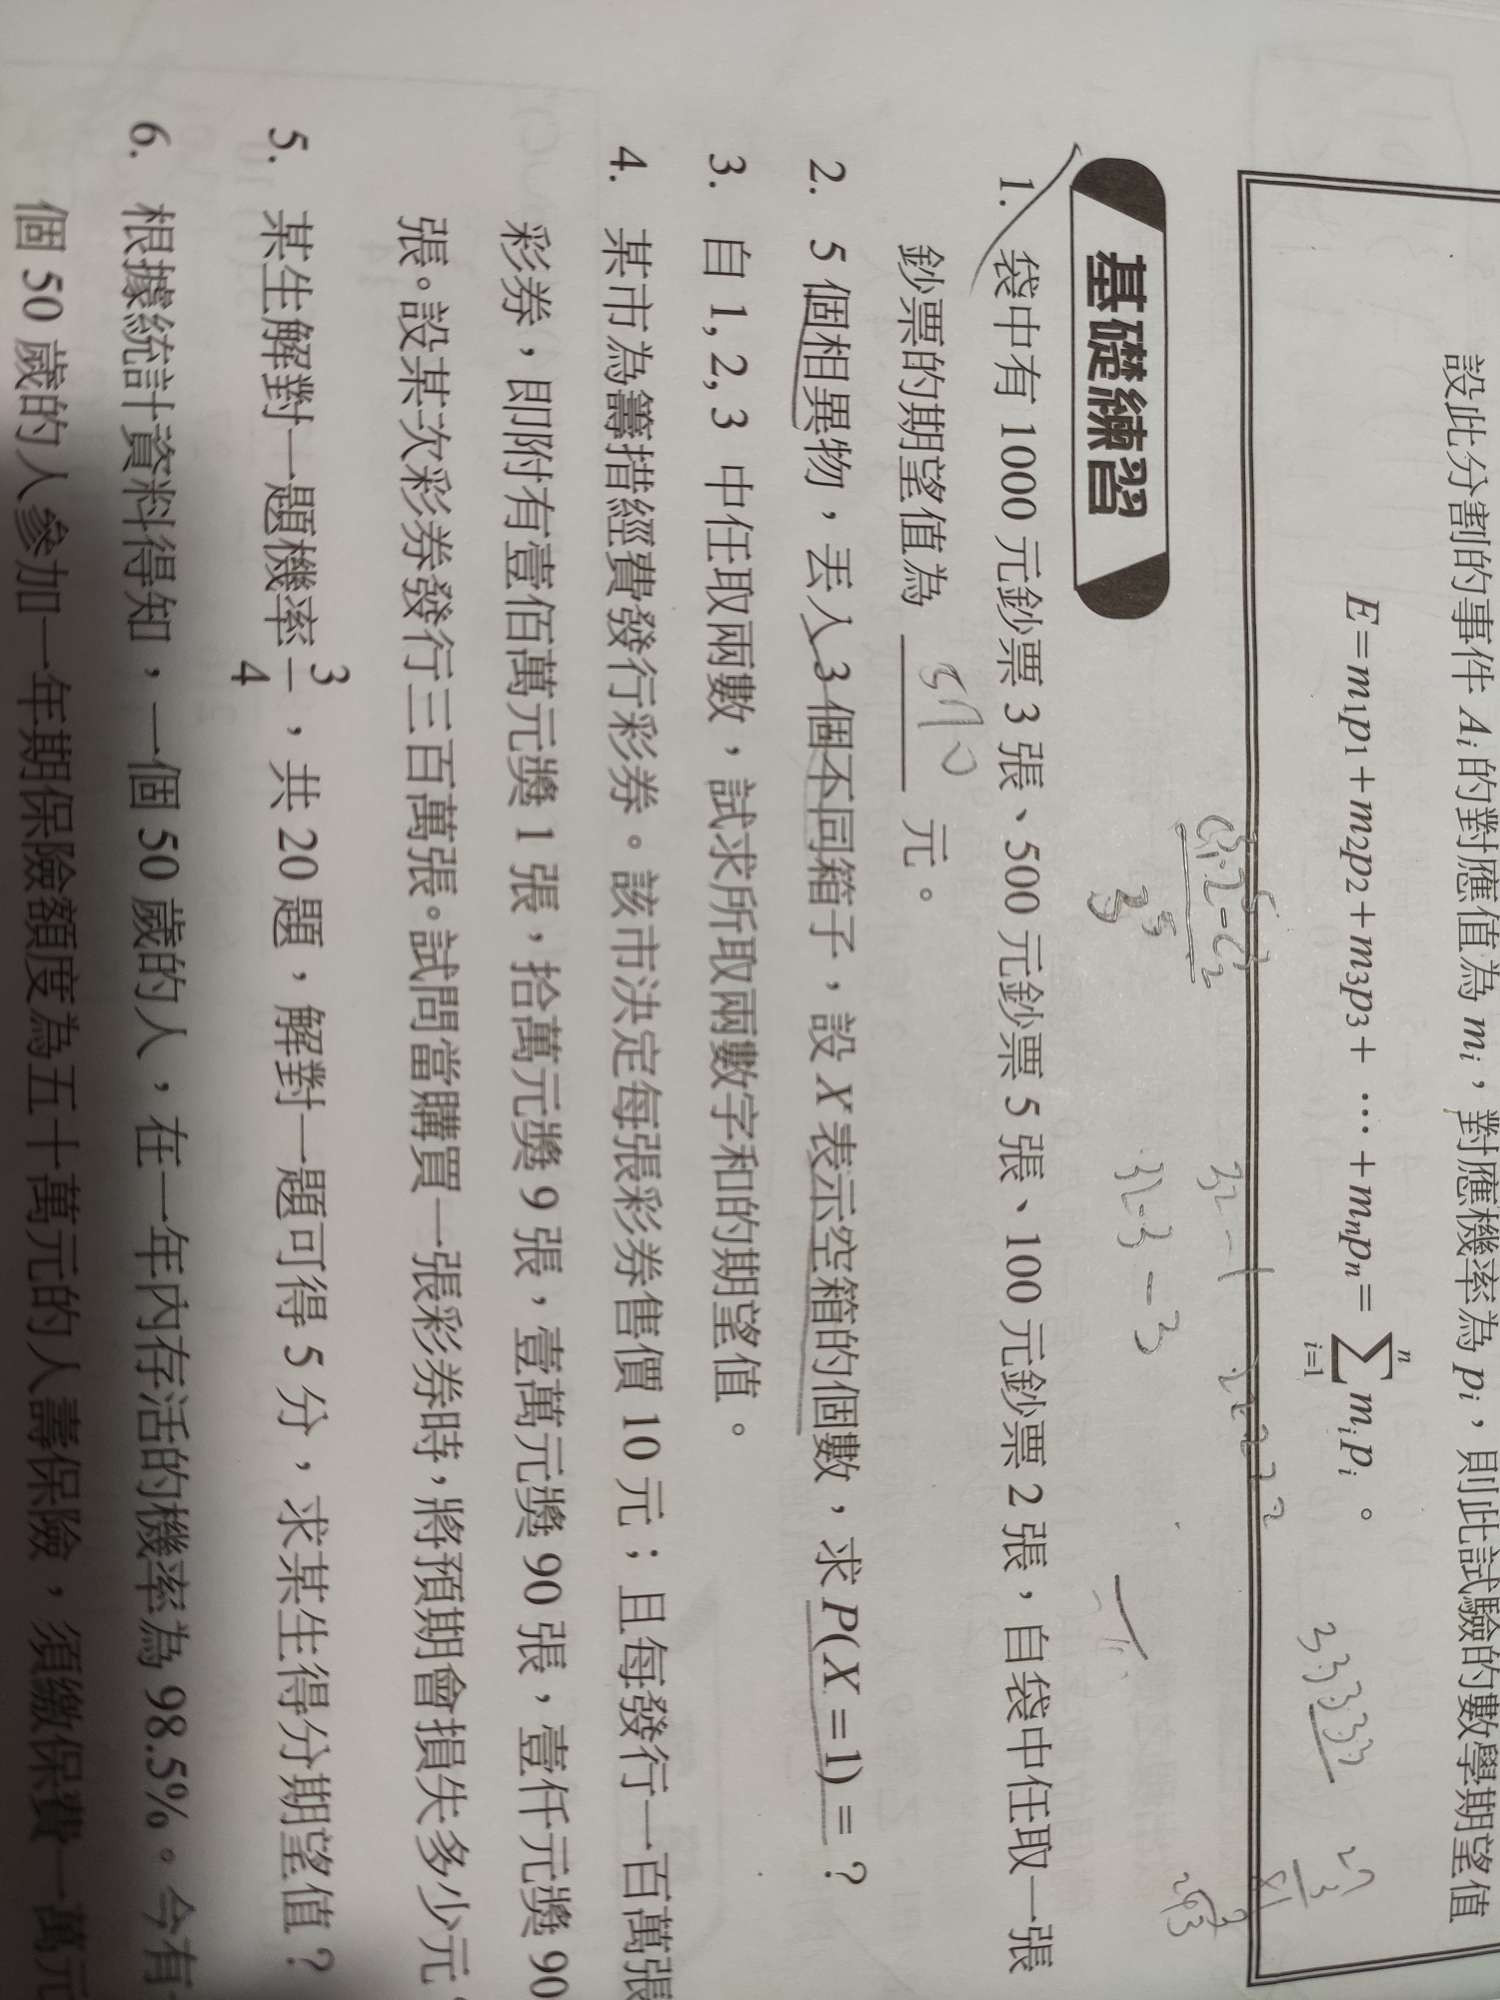 設此分割的事件 Ai 的對應值為 mi，對應機率為 pi，則此試驗的數學期望值
E=m1p1+m2p2+m3p3+ … +mnpn= n∑i=1 mipi 。
基礎練習
1. 袋中有 1000 元鈔票 3 張、500 元鈔票 5 張、100 元鈔票 2 張，自袋中任取一張
鈔票的期望值為 570 元。
2. 5 個相異物，丟入 3 個不同箱子，設 X 表示空箱的個數，求 P(X=1)=？
3. 自 1, 2, 3 中任取兩數，試求所取兩數數字和的期望值。
4. 某市為籌措經費發行彩券。該市決定每張彩券售價 10 元；且每發行一百萬張
彩券，即附有壹佰萬元獎 1 張，拾萬元獎 9 張，壹萬元獎 90 張，壹仟元獎 90
張。設某次彩券發行三百萬張。試問當購買一張彩券時，將預期會損失多少元
5. 某生解對一題機率 3/4，共 20 題，解對一題可得 5 分，求某生得分期望值？
6. 根據統計資料得知，一個 50 歲的人，在一年內存活的機率為 98.5%。今有
個 50 歲的人參加一年期保險額度為五十萬元的人壽保險，須繳保費一萬元